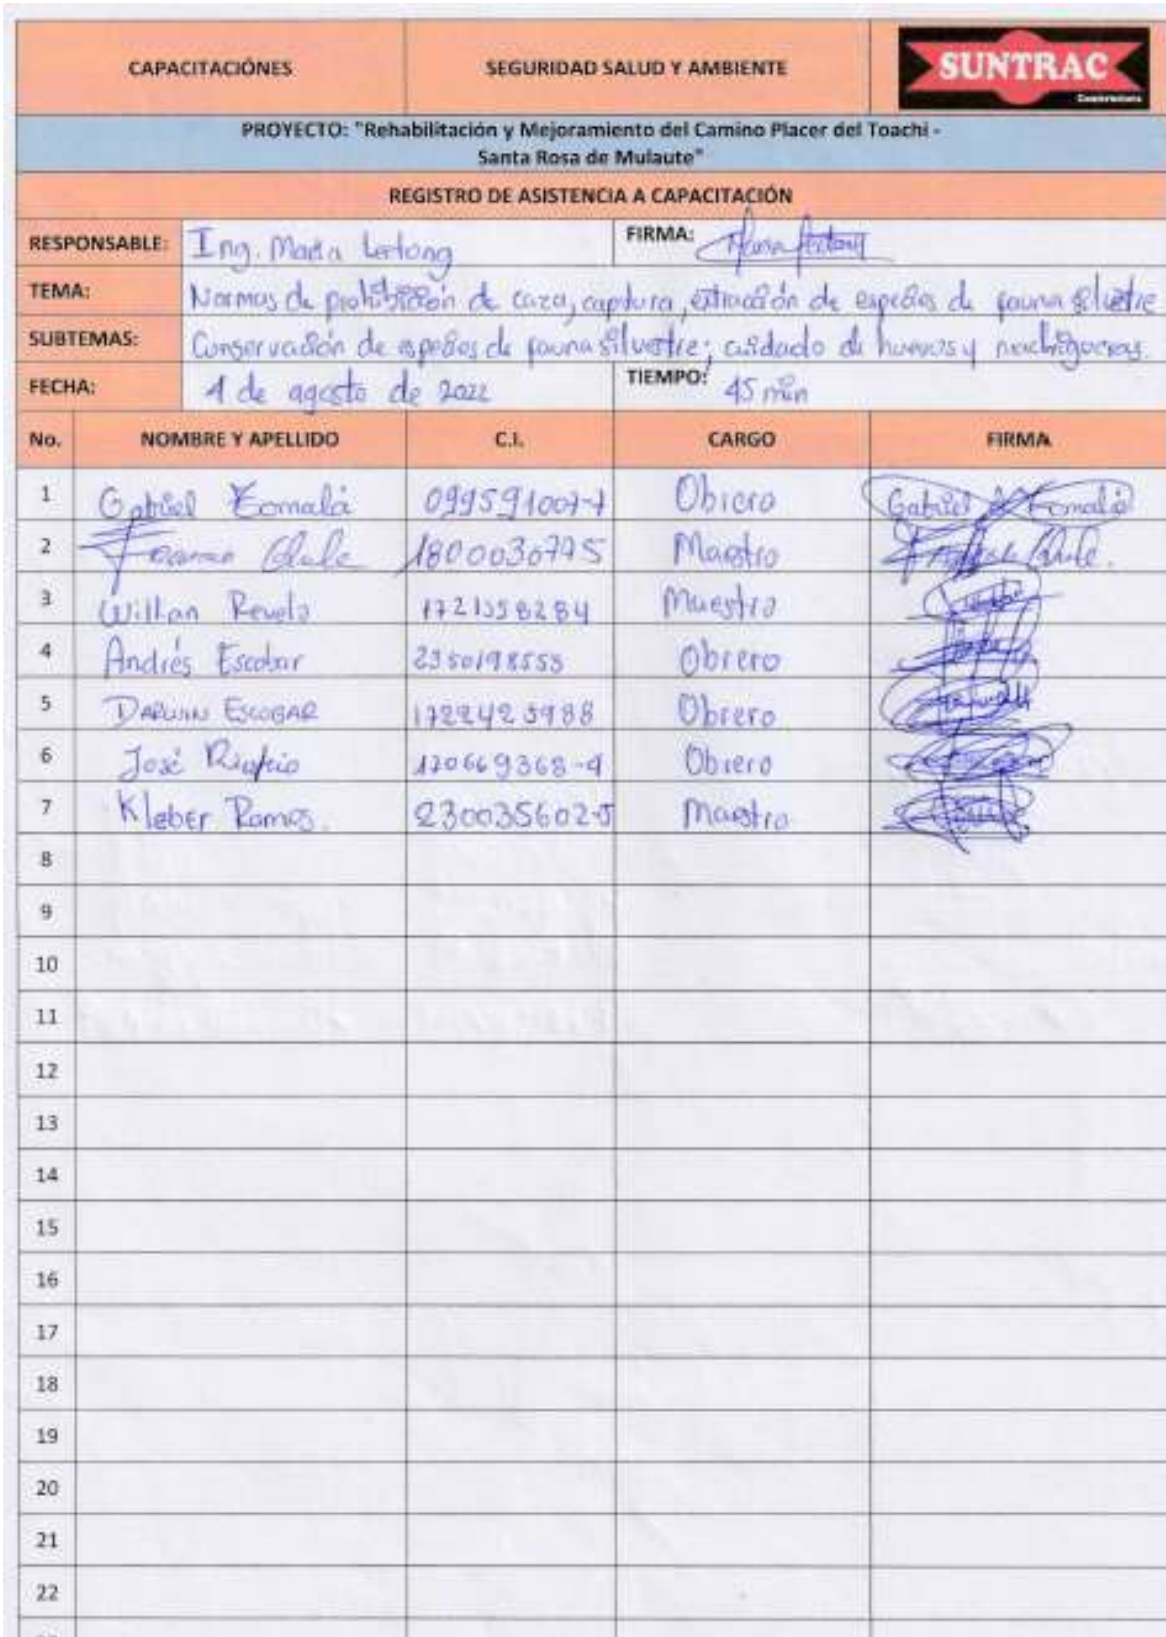 CAPACITACIÓNES SEGURIDAD SALUD Y AMBIENTE SUNTRAC
Constructora
PROYECTO: "Rehabilitación y Mejoramiento del Camino Placer del Toachi -
Santa Rosa de Mulaute"
REGISTRO DE ASISTENCIA A CAPACITACIÓN
RESPONSABLE: Ing. Maria FIRMA:
TEMA: Normas de prohibición de caza, captura, extracción de especies de fauna silvestre
SUBTEMAS: Conservación de especies de fauna silvestre; cuidado de huevos y
FECHA: 1 de agosto de 2022 TIEMPO: 45 min
No. NOMBRE Y APELLIDO C.I. CARGO FIRMA
1 Gabriel Obrero Gabriel
2 1800030795 Maestro
3 Willan Revelo 1721358284 Maestro
4 Andrés Escobar 2350198553 Obrero
5 DARWIN ESCOBAR 1722423988 Obrero
6 José 120669368-9 Obrero
7 Kleber Ramos. 230035602-5 Maestro
8
9
10
11
12
13
14
15
16
17
18
19
20
21
22